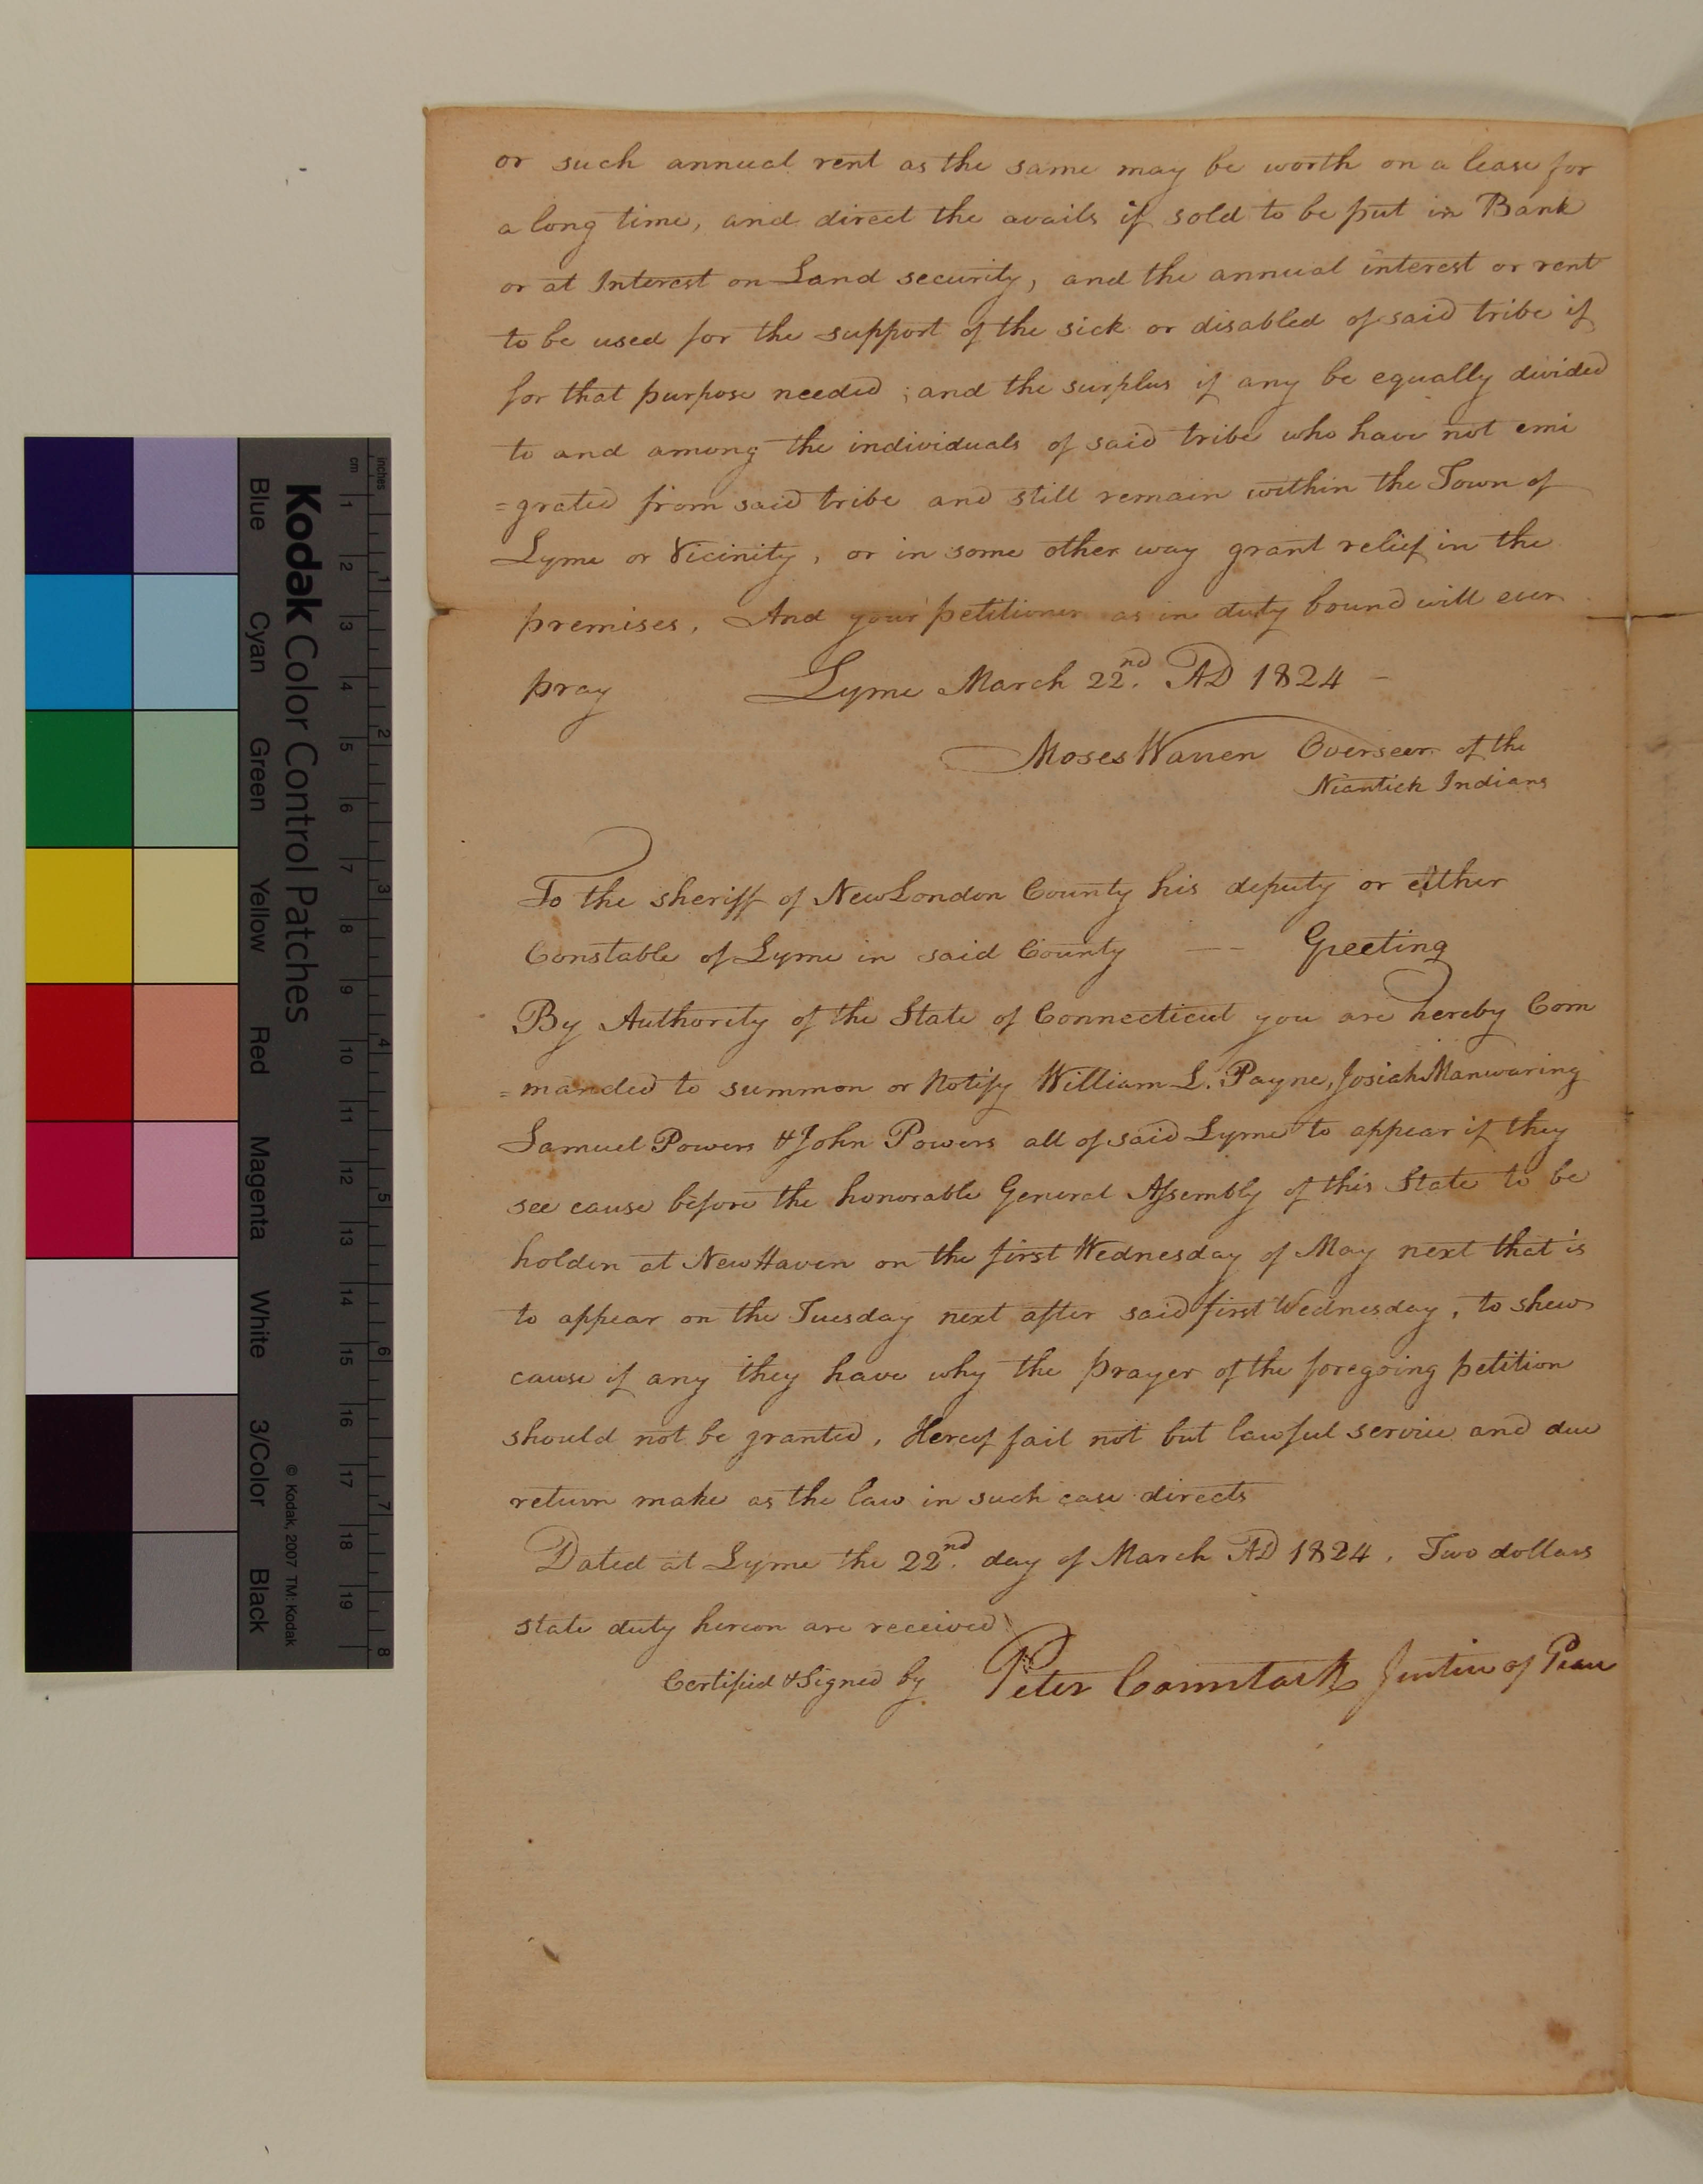 or such annual rent as the same may be worth on a lease for
a long time, and direct the avails if sold to be put in Bank
or at Interest on Land security, and the annual interest or rent
to be used for the support of the sick or disabled of said tribe if
for that purpose needed ; and the surplus if any be equally divided
to and among the individuals of said tribe who have not emi
=grated from said tribe and still remain within the Town of
Lyme or Vicinity, or in some other way grant relief in the
premises. And your petitioner as in duty bound will ever
pray Lyme March 22nd. AD 1824 -
Moses Warren Overseer of the
Niantick Indians
To the sheriff of New London County his deputy or either
Constable of Lyme in said County — Greeting
By Authority of the State of Connecticut you are hereby Com
=manded to summon or Notify William L. Payne, Josiah Manwaring
Samuel Powers & John Powers all of said Lyme to appear if they
see cause before the honorable General Assembly of this State to be
holden at New Haven on the first Wednesday of May next that is
to appear on the Tuesday next after said first Wednesday, to shew
cause if any they have why the prayer of the foregoing petition
should not be granted. Hereof fail not but lawful service and due
return make as the law in such case directs
Dated at Lyme the 22nd. day of March AD 1824. Two dollars
state duty hereon are received
Certified & Signed by Peter Comstock Justice of Peace
Kodak Color Control Patches
© Kodak, 2007 TM: Kodak
Blue Cyan Green Yellow Red Magenta White 3/Color Black
cm 1 2 3 4 5 6 7 8 9 10 11 12 13 14 15 16 17 18 19
inches 1 2 3 4 5 6 7 8